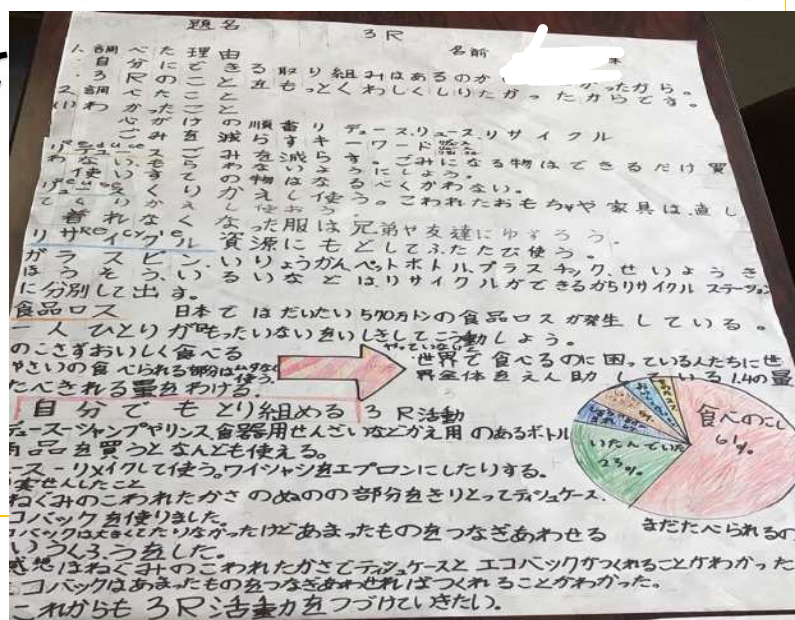 題名 3R
名前
1. 調べた理由
・自分にできる取り組みはあるのか
かったから。
・3Rのことをもっとくわしくしりたかったからです。
2 調べたこと
(1) わかったこと
心がけの順番リデュース、リユース、リサイクル
ごみを減らすキーワード
reduce
リデュース ごみを減らす。ごみになる物はできるだけ買
わない、もらわないようにしよう。
使いすての物はなるべくかわない。
reuse
くりかえし使う。こわれたおもちゃや家具は、直し
てくりかえし使おう。
着れなくなった服は兄弟や友達にゆずろう。
Recycle
リサイクル 資源にもどしてふたたび使う。
ガラスビン、いりょうかんペットボトル、プラスチック、せいようき
ほうそう、いるいなどはリサイクルができるからリサイクルステーション
に分別して出す。
食品ロス 日本ではだいたい570万トンの食品ロスが発生している。
一人ひとりが「もったいないをいしきしてこう動しよう。
のこさずおいしく食べる
やさいの食べられる部分はムダなく使う。
たべきれる量をわける。
世界で食べるのに困っている人たちに世
界全体をえん助している1.4の量
自分でもとり組める3R活動
デュースーシャンプやリンス、食器用せんざいなどかえ用のあるボトル
商品を買うとなんども使える。
ースーリメイクして使う。ワイシャシをエプロンにしたりする。
実せんしたこと
ねぐみのこわれたかさのぬのの部分をきりとってティシュケース、
コバックを使りました。
コバックは大きくてたりなかったけどあまったものをつなぎあわせる
いうくふうをした。
感想はねぐみのこわれたかさでティシュケースとエコバックがつくれることがわかった
コバックはあまったものをつなぎあわせればつくれることがわかった。
これからも3R活動力をつづけていきたい。
食べのこし
61%
いたんでいた
23%
まだたべられるの